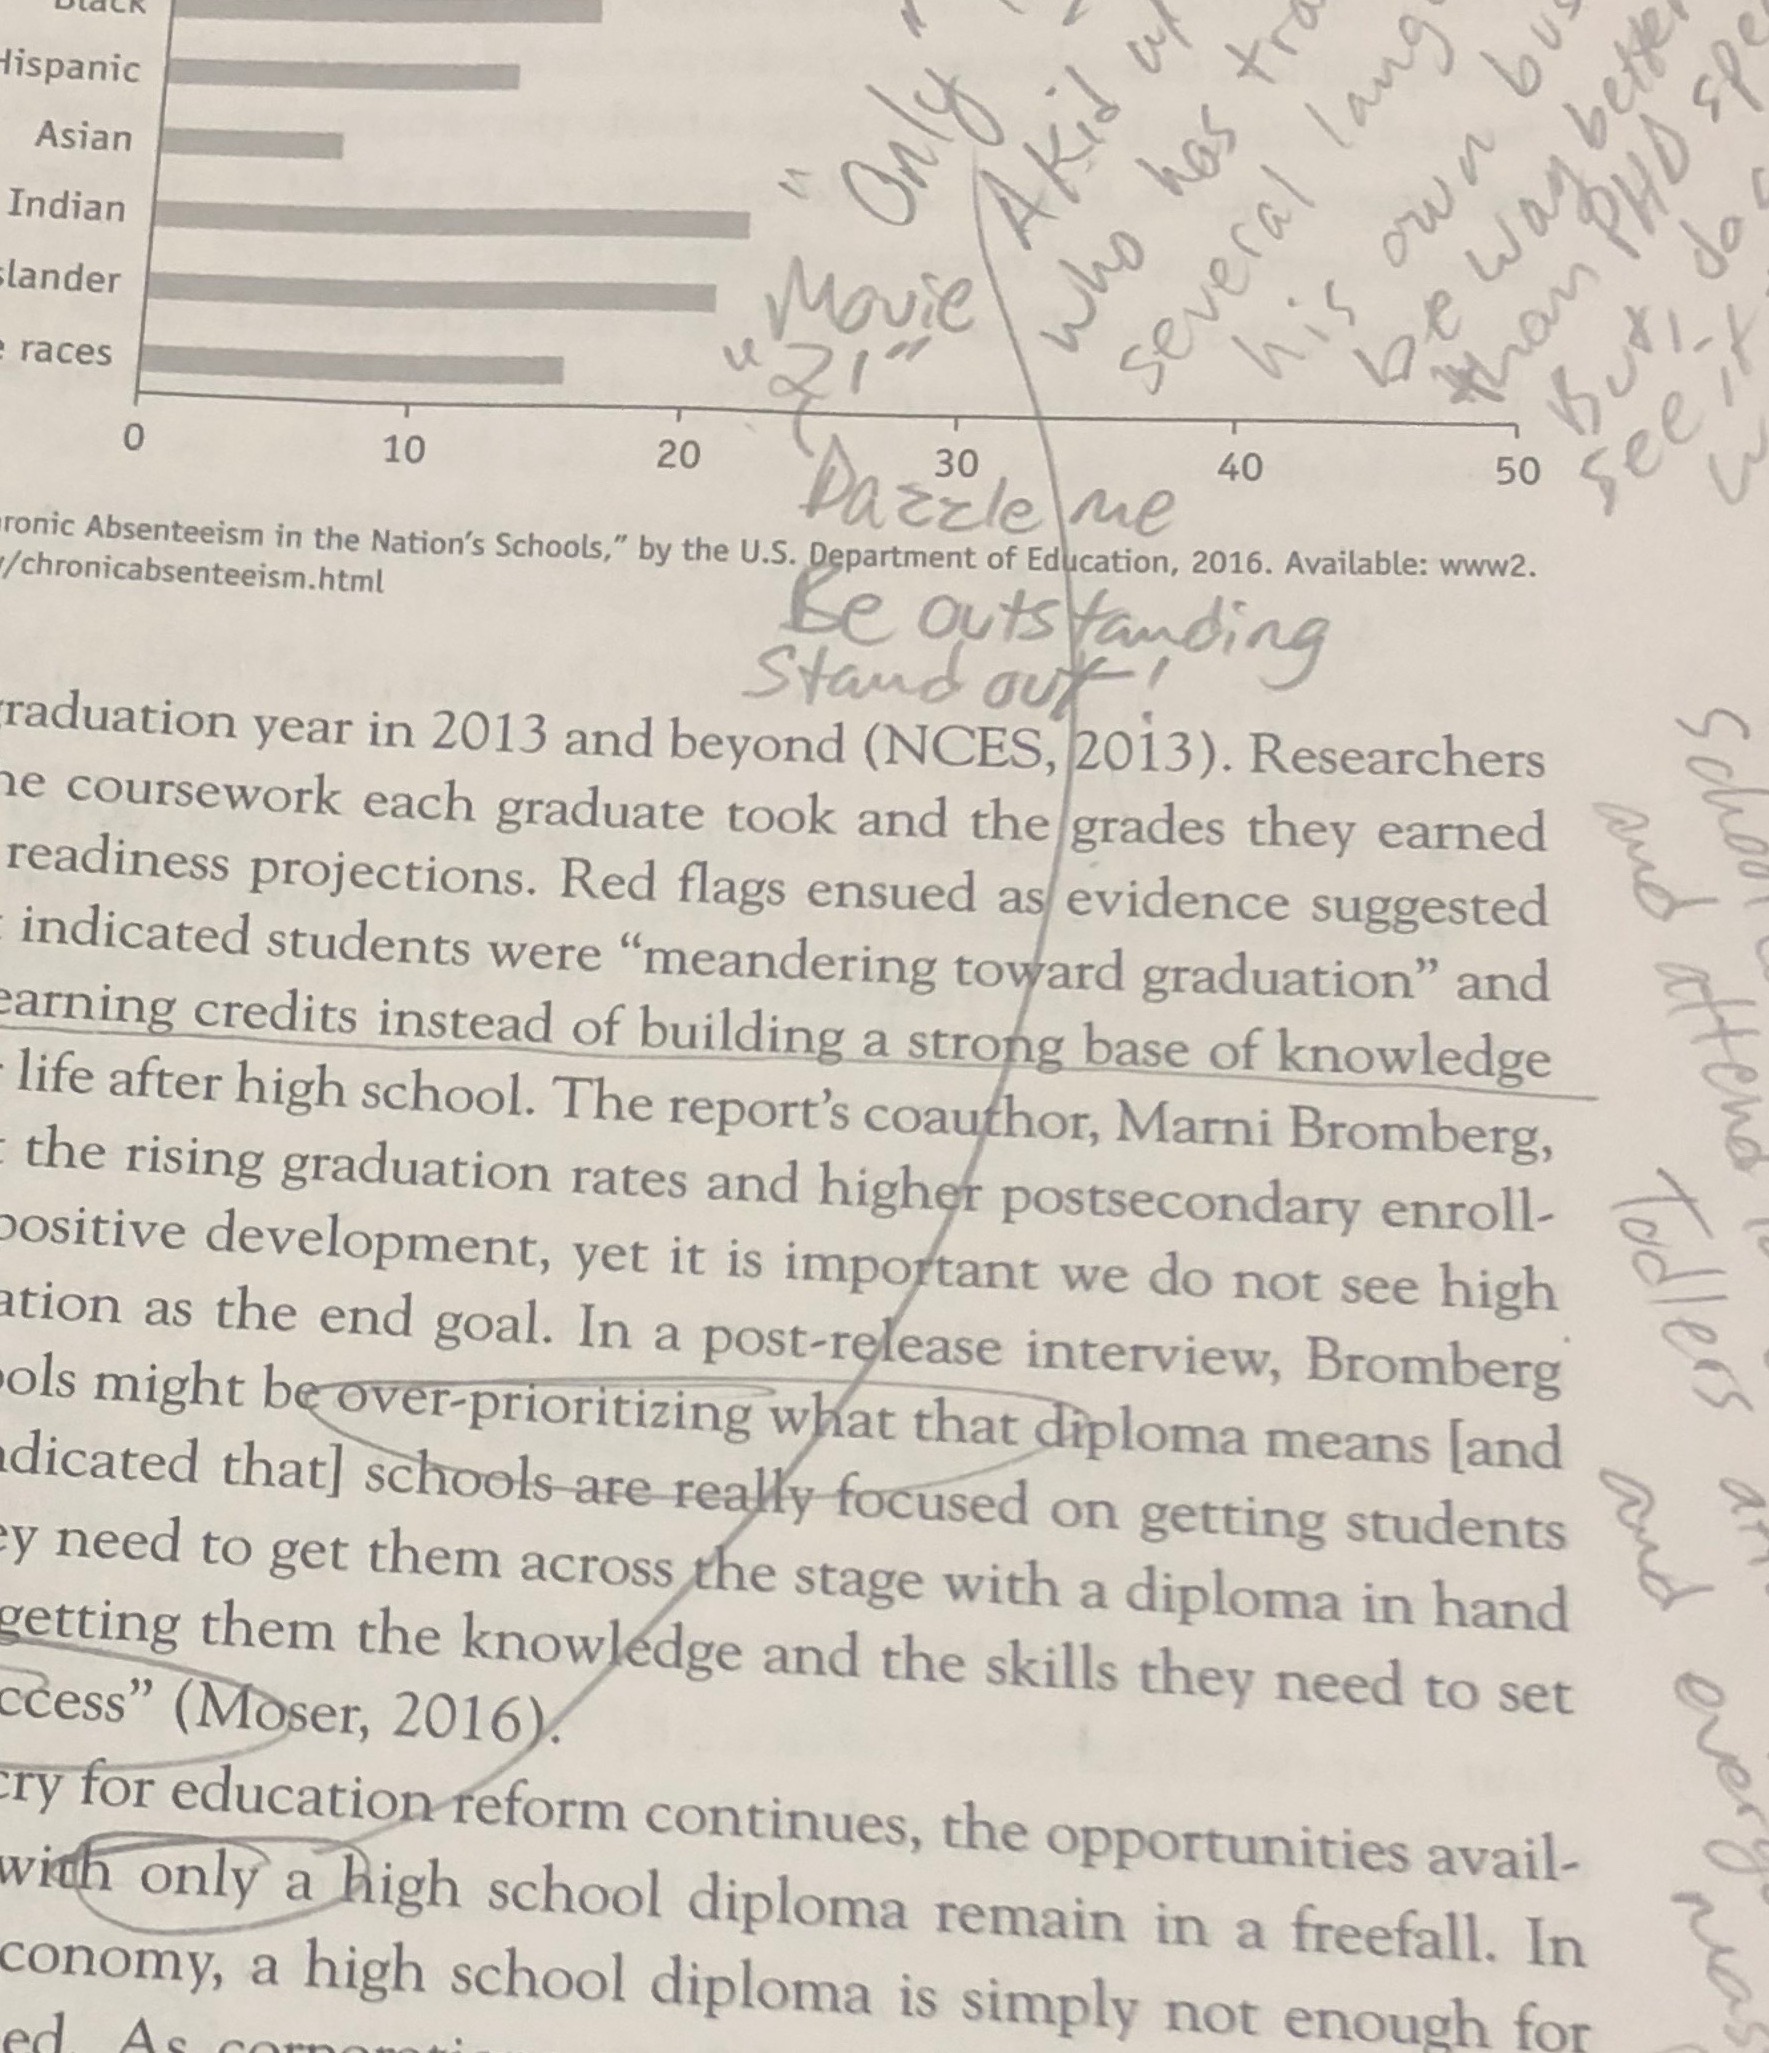 Black
Hispanic
Asian
Indian
slander
races
0 10 20 30 40 50
"Only"
A Kid
who has
several
his own
be way better
than PHD
But I do
see it
Movie
"21"
Dazzle me
Be outstanding
Stand out!
ronic Absenteeism in the Nation's Schools," by the U.S. Department of Education, 2016. Available: www2.
/chronicabsenteeism.html
raduation year in 2013 and beyond (NCES, 2013). Researchers
he coursework each graduate took and the grades they earned
readiness projections. Red flags ensued as evidence suggested
indicated students were “meandering toward graduation” and
earning credits instead of building a strong base of knowledge
life after high school. The report's coauthor, Marni Bromberg,
the rising graduation rates and higher postsecondary enroll-
positive development, yet it is important we do not see high
ation as the end goal. In a post-release interview, Bromberg
ols might be over-prioritizing what that diploma means [and
dicated that] schools are really focused on getting students
ey need to get them across the stage with a diploma in hand
getting them the knowledge and the skills they need to set
ccess” (Moser, 2016).
cry for education reform continues, the opportunities avail-
with only a high school diploma remain in a freefall. In
conomy, a high school diploma is simply not enough for
ed. As
School
and attend
Todllers
and